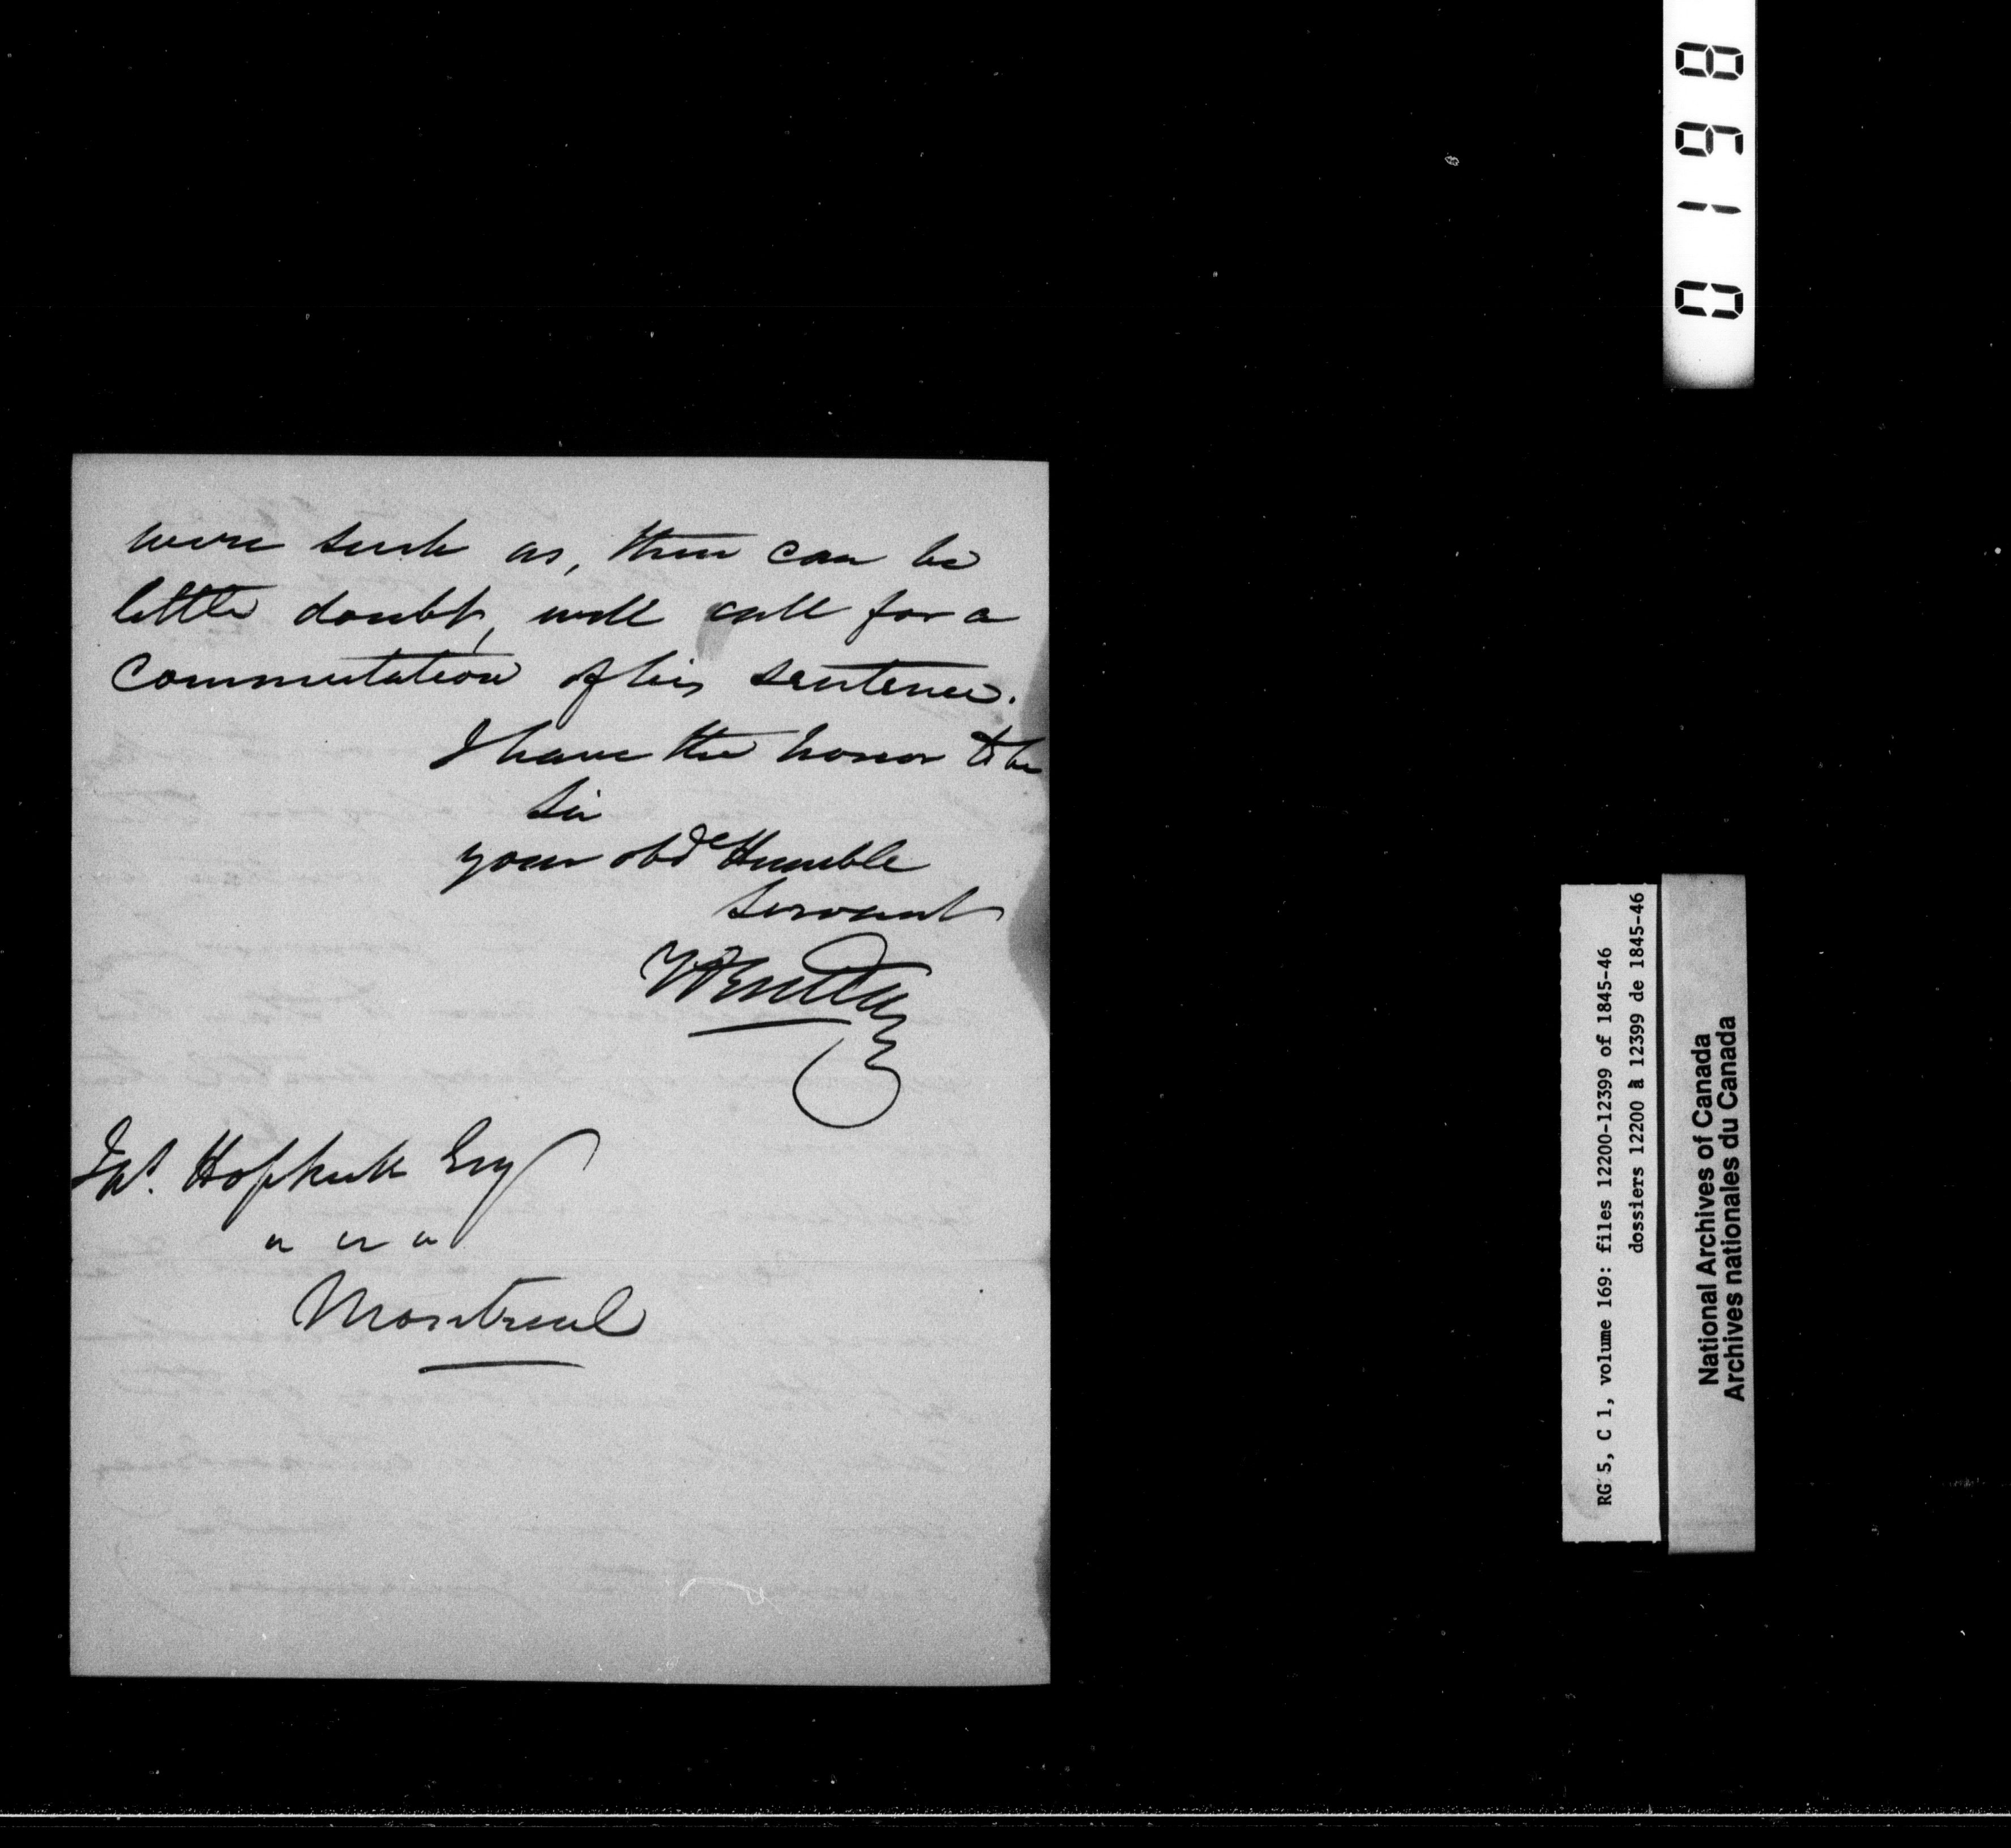 were such as, there can be
little doubt, will call for a
Commutation of his sentence.
I have the honor to be
Sir
your obd Humble
Servant
Esq
" " "
Montreal
0198
RG 5, C 1, volume 169: files 12200-12399 of 1845-46
dossiers 12200 à 12399 de 1845-46
National Archives of Canada
Archives nationales du Canada